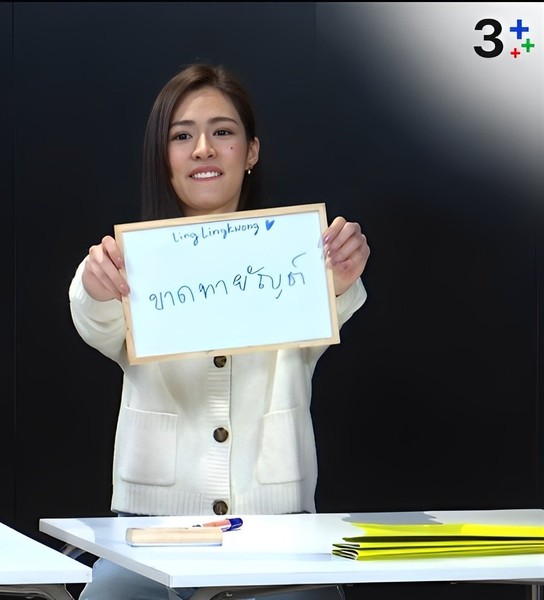 3
Ling Lingkwong
ขาดทายัญต์